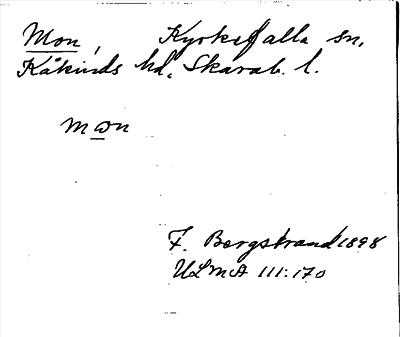 Mon, Kyrkefalla sn,
Kåkinds hd, Skarab. l.
mωn
F. Bergstrand 1898
ULMA 111:170